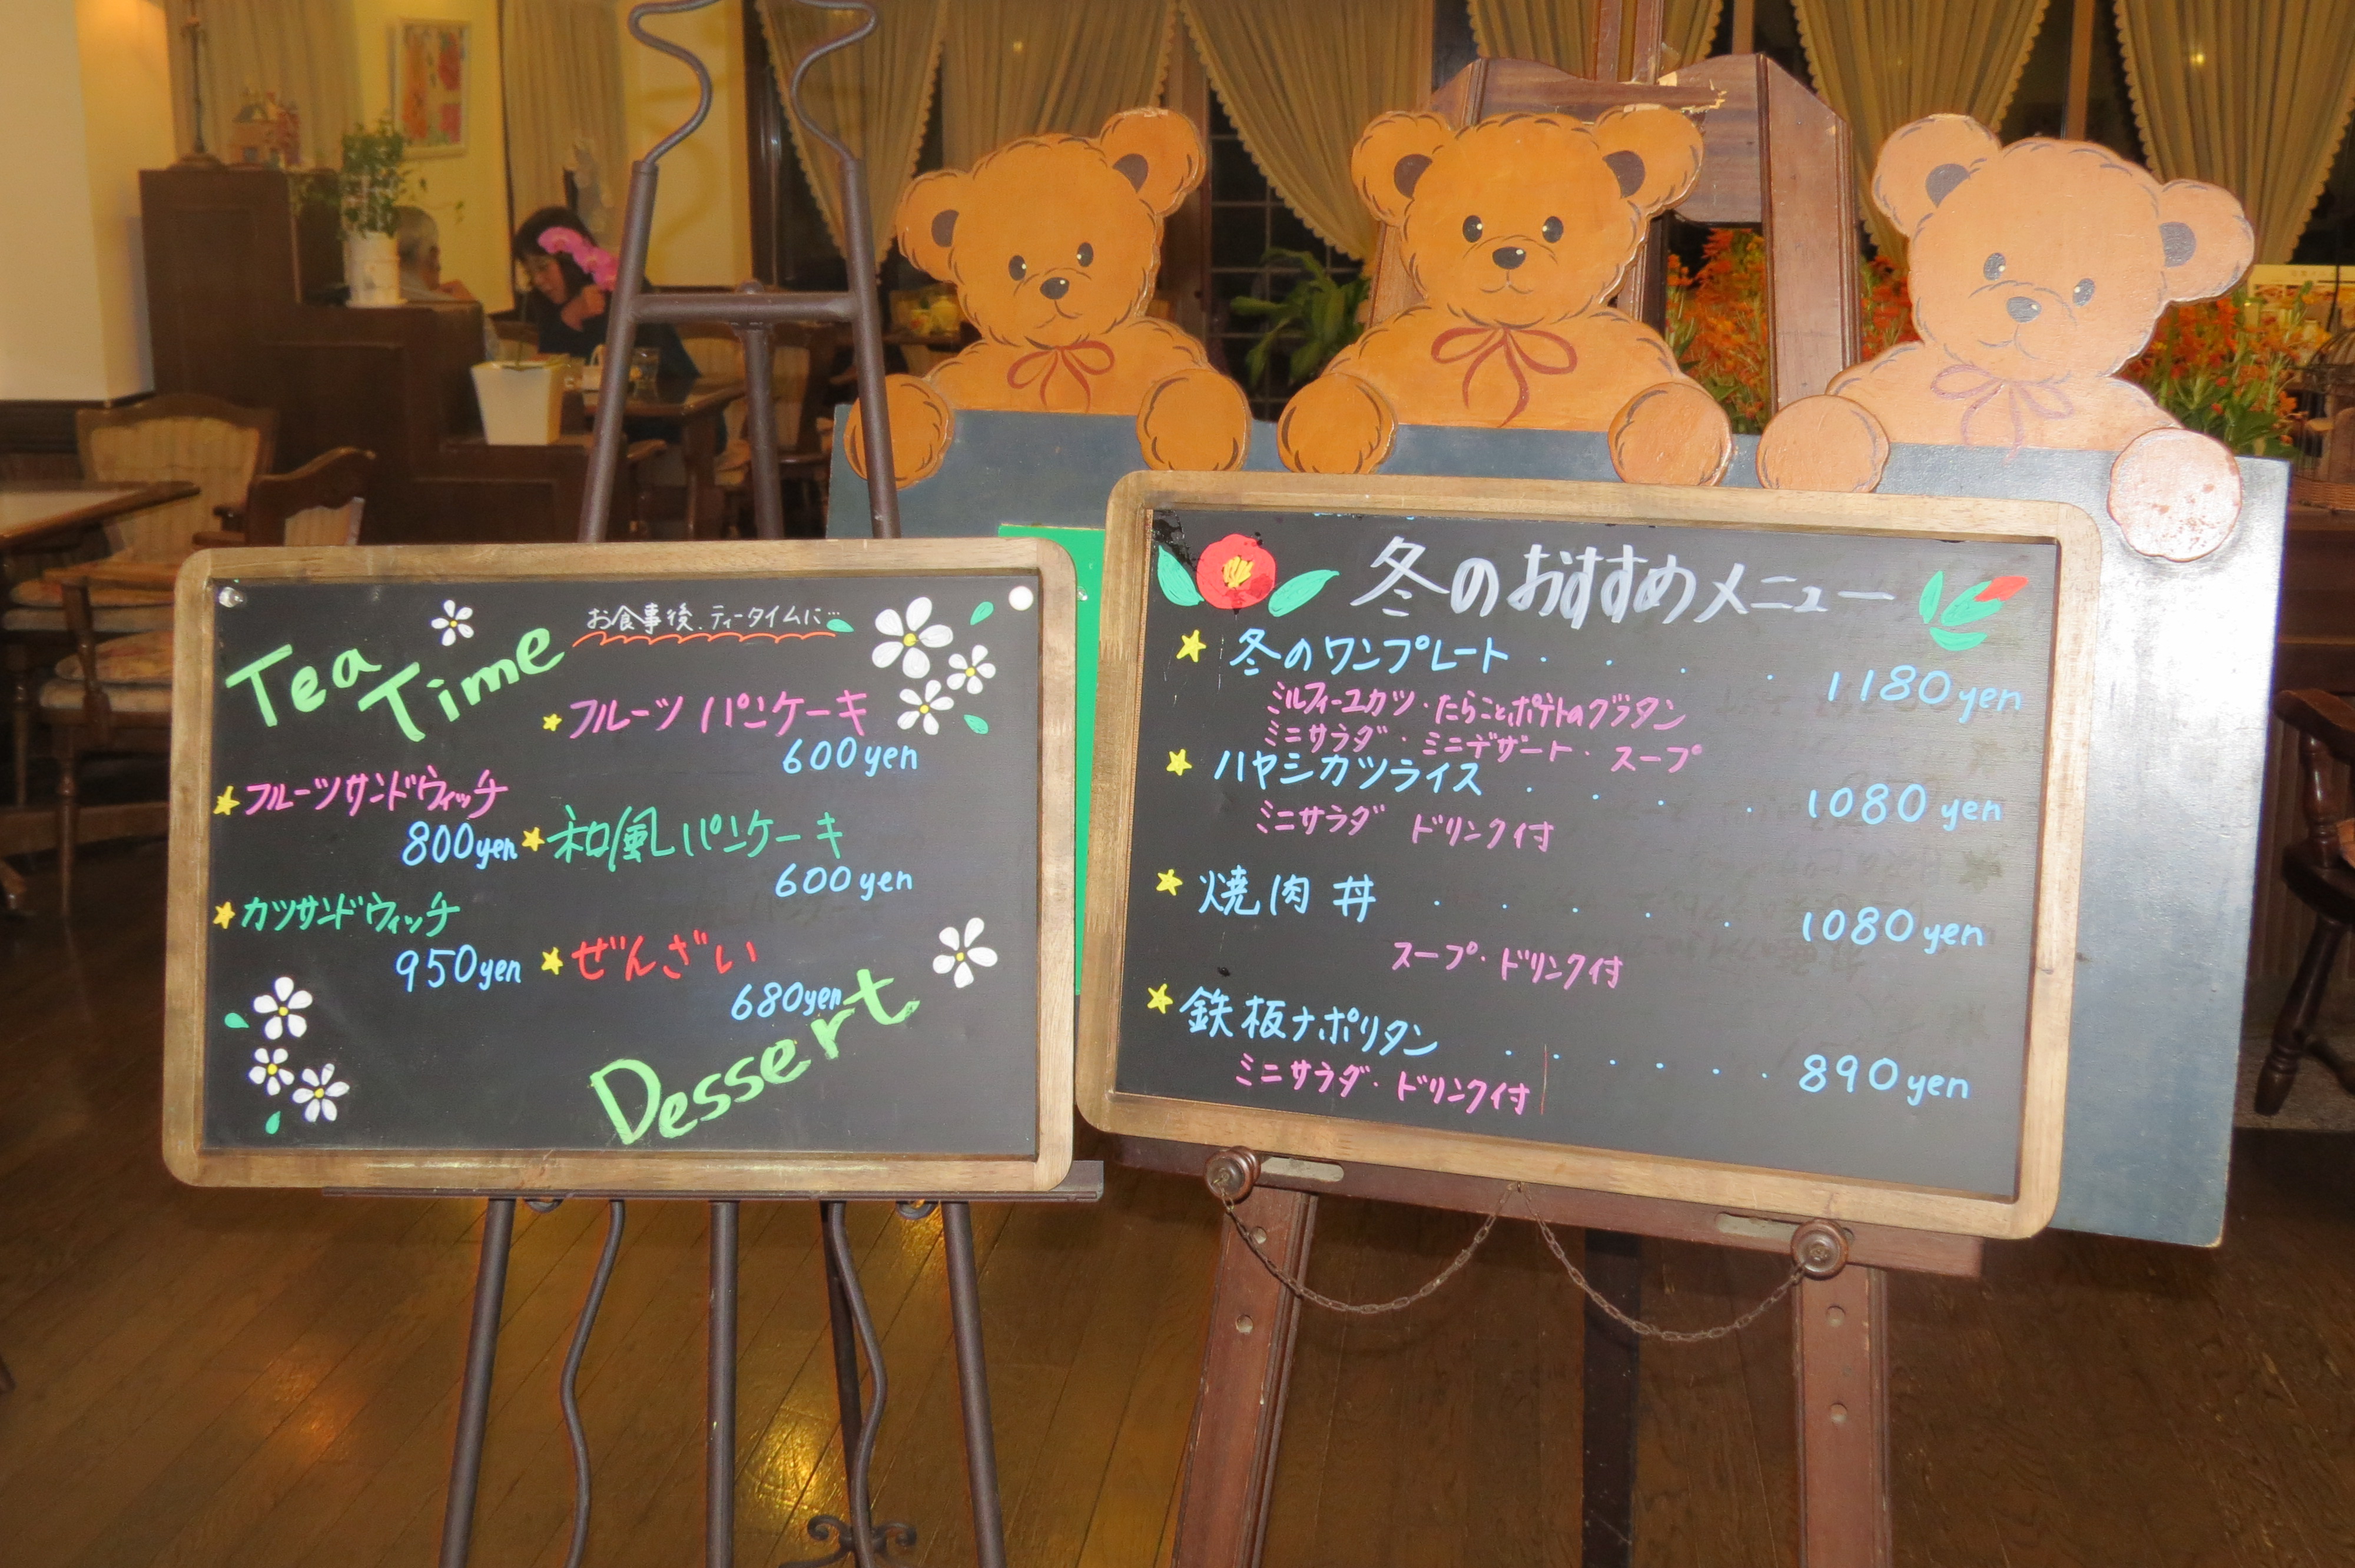 Tea Time
お食事後、ティータイムに…
フルーツパンケーキ
600yen
フルーツサンドウィッチ
800yen
和風パンケーキ
600yen
カツサンドウィッチ
950yen
ぜんざい
680yen
Dessert
冬のおすすめメニュー
冬のワンプレート ・・・・ 1180yen
ミルフィーユカツ・たらことポテトのグラタン
ミニサラダ・ミニデザート・スープ
ハヤシカツライス ・・・・ 1080yen
ミニサラダ ドリンク付
焼肉丼 ・・・・・ 1080yen
スープ・ドリンク付
鉄板ナポリタン ・・・・・・ 890yen
ミニサラダ・ドリンク付